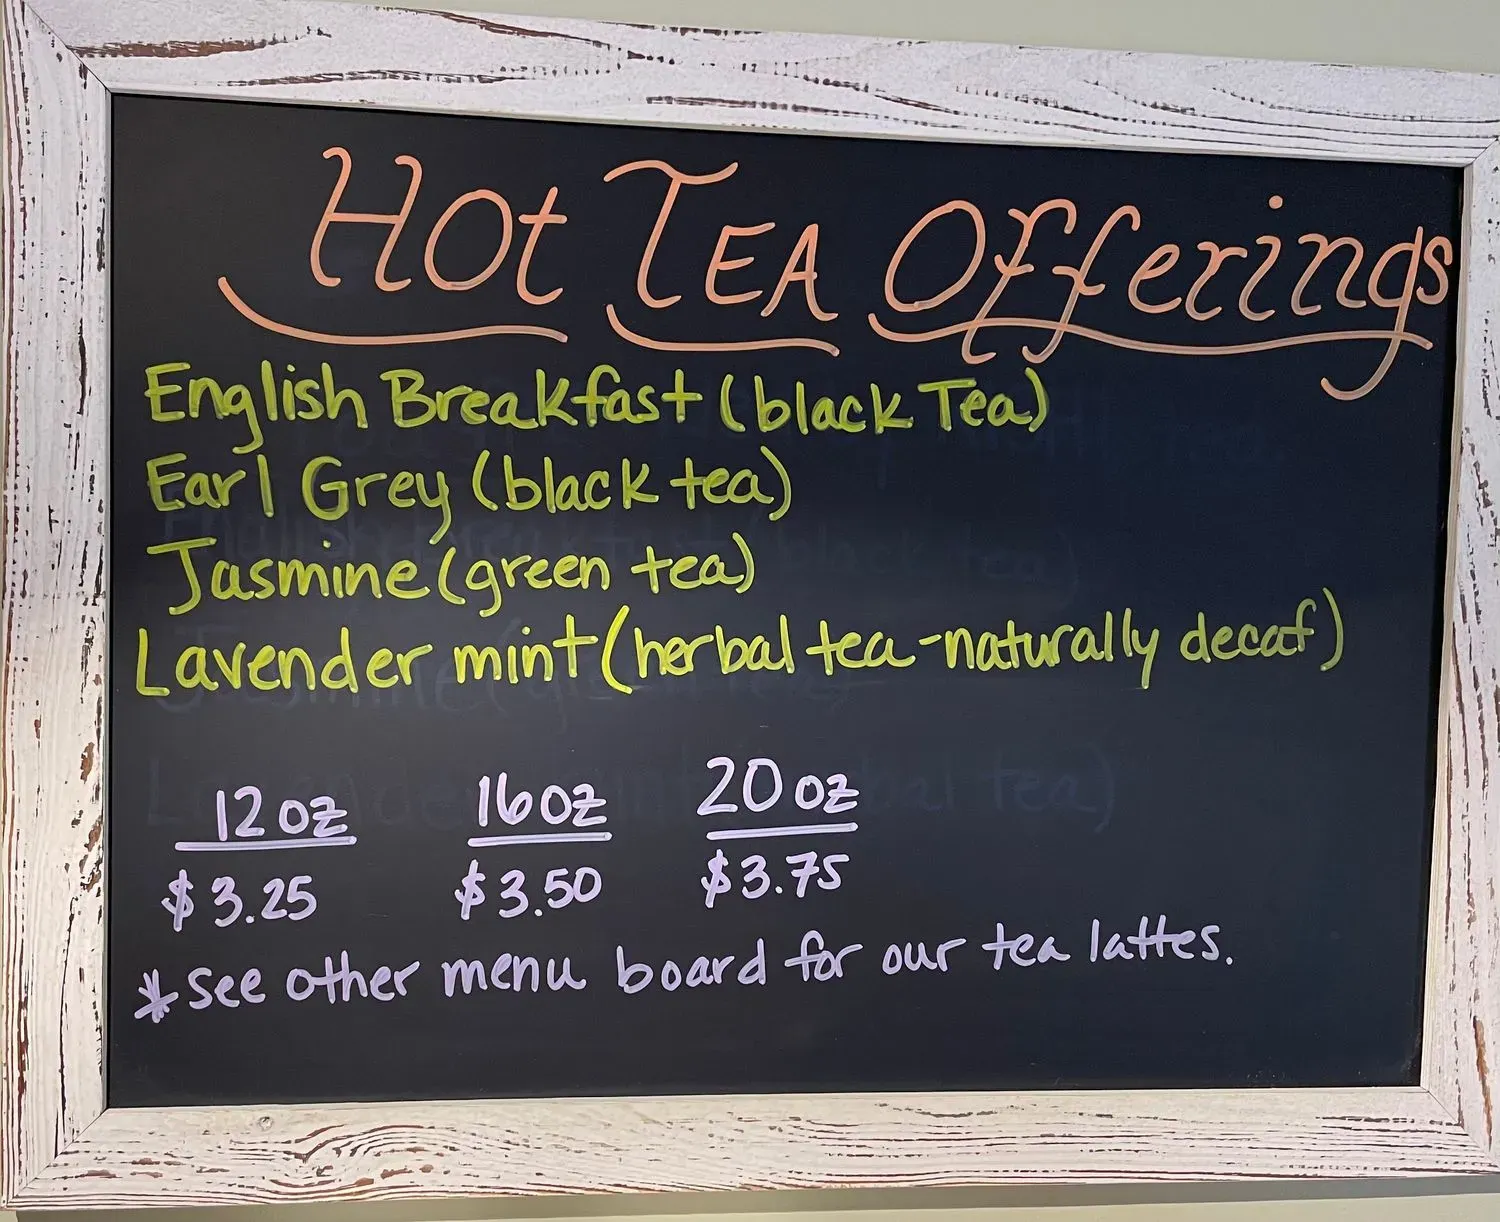 Hot TEA Offerings
English Breakfast (black Tea)
Earl Grey (black tea)
Jasmine (green tea)
Lavender mint (herbal tea - naturally decaf)
12 oz 16 oz 20 oz
$3.25 $3.50 $3.75
* see other menu board for our tea lattes.